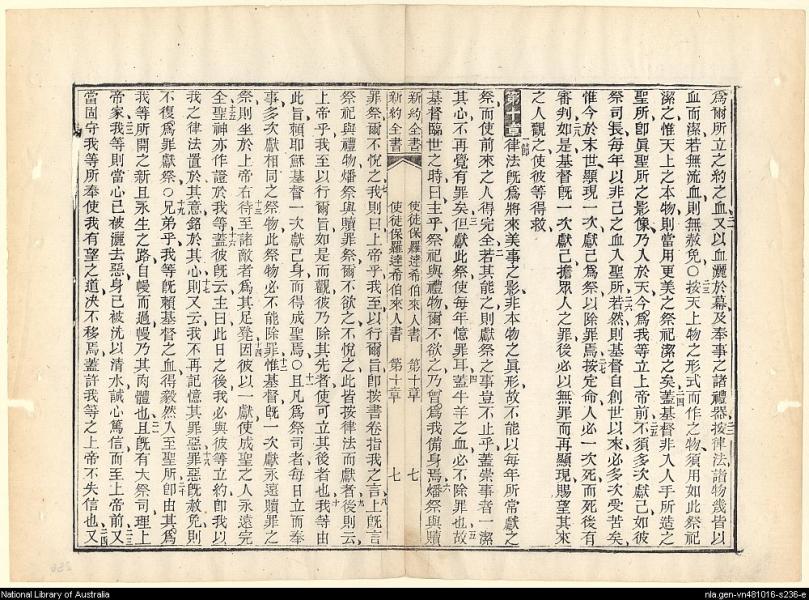 爲爾所立之約之血又以血灑於幕及奉事之諸禮器按律法諸物幾皆以
血而潔若無流血則無赦免○按天上物之形式而作之物須用如此祭祀
潔之惟天上之本物則當用更美之祭祀潔之矣蓋基督非入人手所造之
聖所卽眞聖所之影像乃入於天今爲我等立上帝前不須多次獻己如彼
祭司長每年以非己之血入聖所若然則基督自創世以來必多次受苦矣
惟今於末世顯現一次獻己爲祭以除罪焉按定命人必一次死而死後有
審判如是基督旣一次獻己擔眾人之罪後必以無罪而再顯現賜望其來
之人觀之使彼等得救
第十章 一節 律法旣爲將來美事之影非本物之眞形故不能以每年所常獻之
祭而使前來之人得完全若其能之則獻祭之事豈不止乎蓋崇事者一潔
其心不再覺有罪矣但獻此祭使每年憶罪耳蓋牛羊之血必不除罪也故
基督臨世之時曰主乎祭祀與禮物爾不欲之乃曾爲我備身焉燔祭與贖
新約全書 使徒保羅達希伯來人書 第十章 七
新約全書 使徒保羅達希伯來人書 第十章 七
罪祭爾不悅之我則曰上帝乎我至以行爾旨卽按書卷指我之言上旣言
祭祀與禮物燔祭與贖罪祭爾不欲之不悅之此皆按律法而獻者後則云
上帝乎我至以行爾旨如是而觀彼乃除其先者使可立其後者也我等由
此旨賴耶穌基督一次獻己身而得成聖焉○且凡爲祭司者每日立而奉
事多次獻相同之祭物此祭物必不能除罪惟基督旣一次獻永遠贖罪之
祭則坐於上帝右待至諸敵者爲其足凳因彼以一獻使成聖之人永遠完
全聖神亦作證於我等蓋彼旣云主曰此日之後我必與彼等立約卽我以
我之律法置於其意銘於其心則又云我不再記憶其罪惡罪惡旣赦免則
不復爲罪獻祭○兄弟乎我等旣賴基督之血得毅然入至聖所卽由其爲
我等所開之新且永生之路自幔而過幔乃其肉體也且旣有大祭司理上
帝家我等則當心已被灑去惡身已被洗以清水誠心篤信而至上帝前又
當固守我等所奉使我有望之道決不移焉蓋許我等之上帝不失信也又
National Library of Australia
nla.gen-vn481016-s236-e